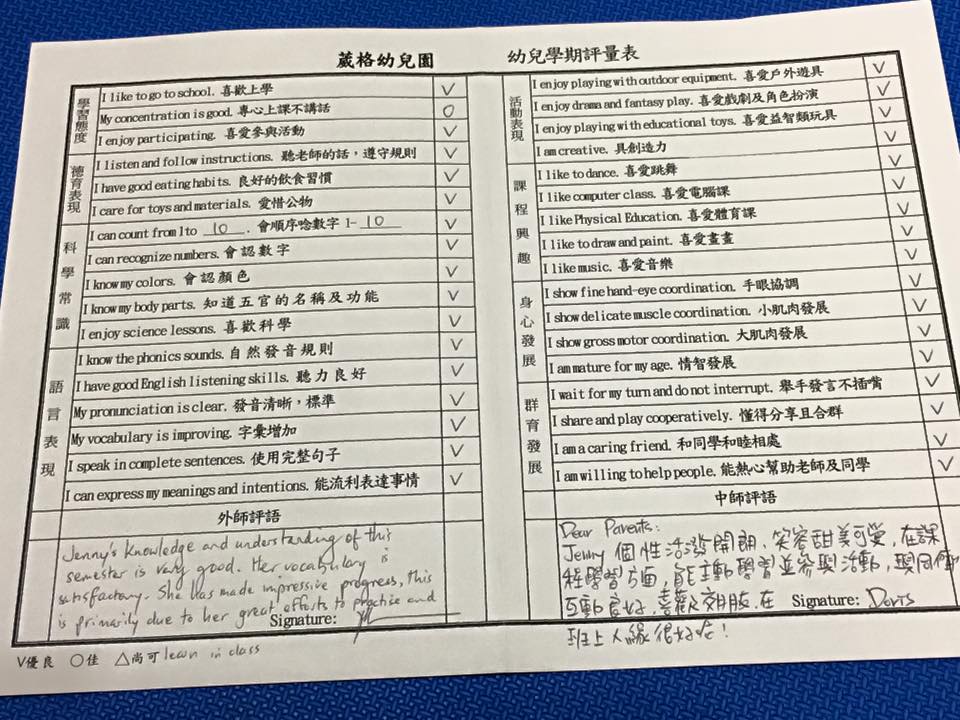 葳格幼兒園
幼兒學期評量表
學習態度
I like to go to school. 喜歡上學 V
My concentration is good. 專心上課不講話 O
I enjoy participating. 喜愛參與活動 V
德育表現
I listen and follow instructions. 聽老師的話，遵守規則 V
I have good eating habits. 良好的飲食習慣 V
I care for toys and materials. 愛惜公物 V
科學常識
I can count from 1 to 10. 會順序唸數字 1-10 V
I can recognize numbers. 會認數字 V
I know my colors. 會認顏色 V
I know my body parts. 知道五官的名稱及功能 V
I enjoy science lessons. 喜歡科學 V
語言表現
I know the phonics sounds. 自然發音規則 V
I have good English listening skills. 聽力良好 V
My pronunciation is clear. 發音清晰，標準 V
My vocabulary is improving. 字彙增加 V
I speak in complete sentences. 使用完整句子 V
I can express my meanings and intentions. 能流利表達事情 V
外師評語
Jenny's knowledge and understanding of this
semester is very good. Her vocabulary is
satisfactory. She has made impressive progress, this
is primarily due to her great efforts to practice and
Signature:
learn in class
V優良 ○佳 △尚可
活動表現
I enjoy playing with outdoor equipment. 喜愛戶外遊具 V
I enjoy drama and fantasy play. 喜愛戲劇及角色扮演 V
I enjoy playing with educational toys. 喜愛益智類玩具 V
I am creative. 具創造力 V
課程興趣
I like to dance. 喜愛跳舞 V
I like computer class. 喜愛電腦課 V
I like Physical Education. 喜愛體育課 V
I like to draw and paint. 喜愛畫畫 V
I like music. 喜愛音樂 V
身心發展
I show fine hand-eye coordination. 手眼協調 V
I show delicate muscle coordination. 小肌肉發展 V
I show gross motor coordination. 大肌肉發展 V
I am mature for my age. 情智發展 V
群育發展
I wait for my turn and do not interrupt. 舉手發言不插嘴 V
I share and play cooperatively. 懂得分享且合群 V
I am a caring friend. 和同學和睦相處 V
I am willing to help people. 能熱心幫助老師及同學 V
中師評語
Dear Parents:
Jenny 個性活潑開朗、笑容甜美可愛，在課
程學習方面，能主動學習並參與活動，與同儕
互動良好，喜歡交朋友，在
Signature: Doris
班上人緣很好呢！